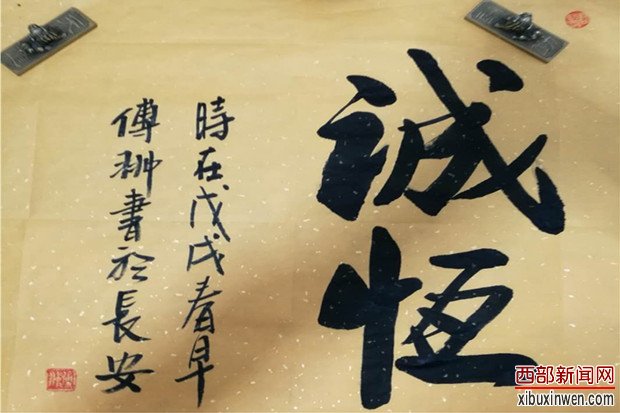 誠恆
時在戊戌春早
傅翀書於長安
西部新闻网
xibuxinwen.com